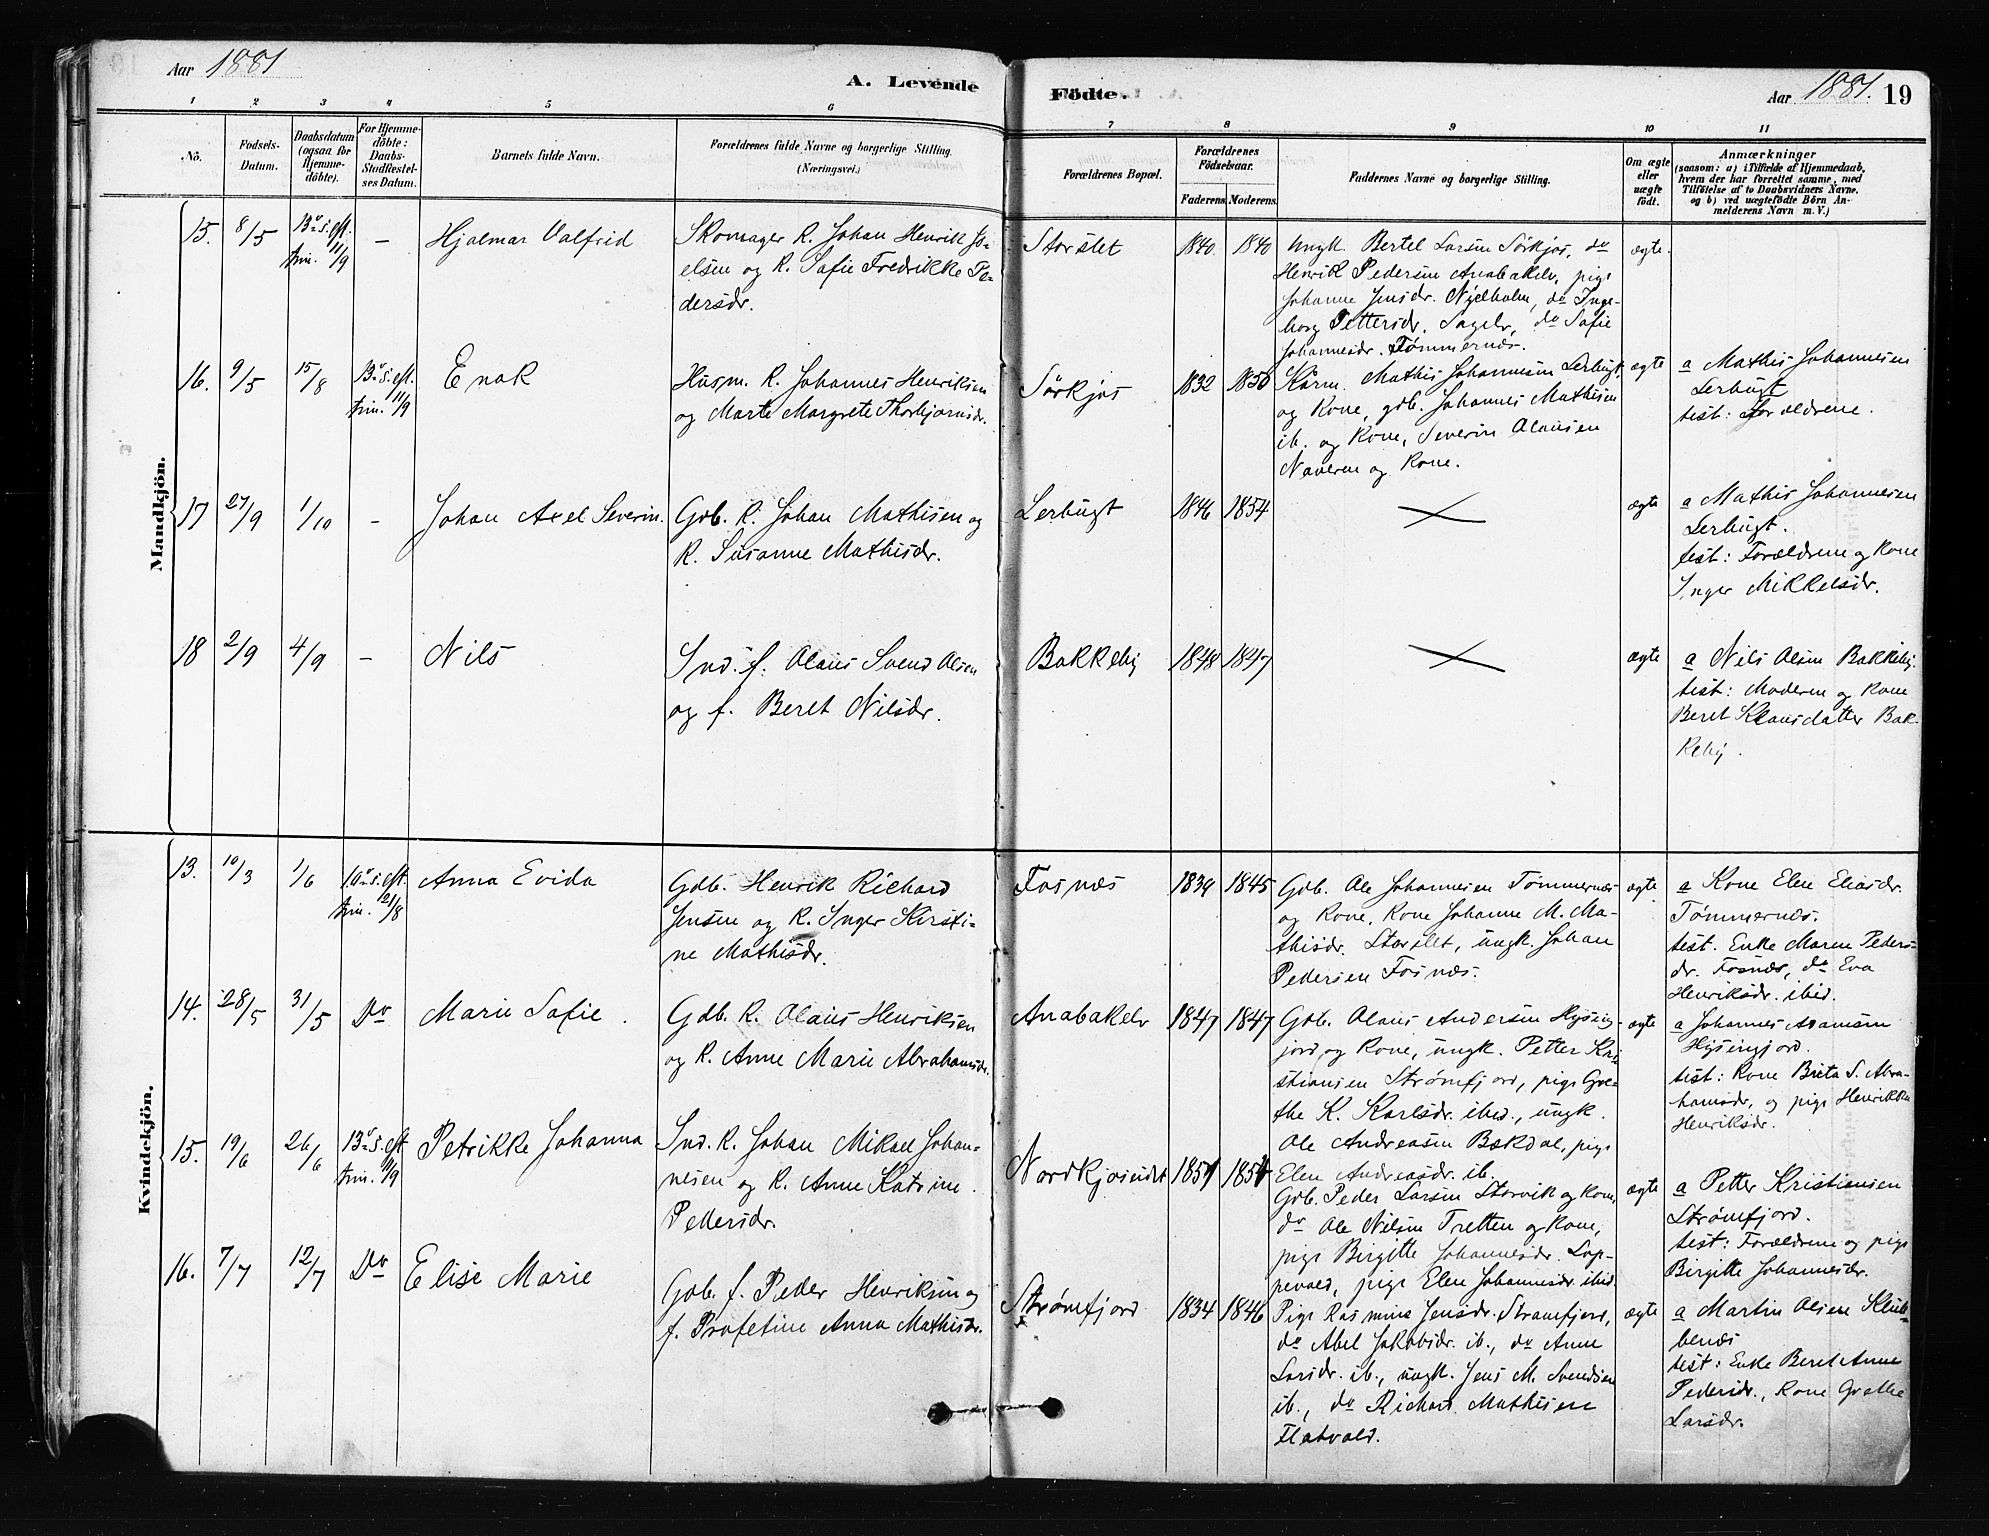 Aar 1881
A. Levende
Födte.
Aar 1881. 19
1 2 3 4 5 6 7 8 9 10 11
No.
Fødsels-
Datum.
Daabsdatum
(ogsaa for
Hjemme-
döbte).
For Hjemme-
döbte:
Daabs-
Stadfæstel-
ses Datum.
Barnets fulde Navn.
Forældrenes fulde Navne og borgerlige Stilling.
(Næringsvei.)
Forældrenes Bopæl.
Forældrenes
Födselsaar.
Faderens. Moderens.
Faddernes Navne og borgerlige Stilling.
Om ægte
eller
uægte
födt.
Anmærkninger
(saasom: a) i Tilfælde af Hjemmedaab,
hvem der har forrettet samme, med
Tilföielse af to Daabsvidners Navne,
og b) ved uægtefödte Börn An-
melderens Navn m. V.)
Mandkjön.
15. 8/5 13de s. eft.
trin. 11/9 - Hjalmar Valfrid
Skomager K. Johan Henrik Jo-
elsen og K. Sofie Fredrikke Pe-
dersdr.
Storslet 1840 1840
Ungk. Bertel Larsen Sørkjos, do
Henrik Pedersen Anabakelv, pige
Johanne Jensdr. Njelholm, do Inge-
borg Pettersdr. Sagelv, do Sofie
Johannesdr. Tømmernæs.
ægte.
16. 9/5 15/8 13de s. eft.
trin. 11/9 Enok
Husm. K. Johannes Henriksen
og Marte Margrete Thorbjørnsdr.
Sörkjos 1832 1850
Kårm. Mathis Johannesen Lerbugt,
og Kone, gdb. Johannes Mathisen
ib. og Kone, Severin Olausen
Naveren og Kone.
ægte
a Mathis Johannesen
Lerbugt
test: Forældrene.
17 27/9 1/10 - Johan Axel Severin.
Gdb. K. Johan Mathisen og
K. Susanne Mathisdr.
Lerbugt 1846 1854
ægte
a Mathis Johannesen
Lerbugt.
test: Forældrene og Kone
Inger Mikkelsdr.
18 2/9 4/9 - Nils
Ind. f. Olaus Svend Olsen
og f. Beret Nilsdr.
Bakkeby 1848 1847
ægte
a Nils Olsen Bakkeby.
test: Moderen og Kone
Beret Klausdatter Bak-
keby.
Kvindekjön.
13. 10/3 1/6 10de s. eft.
trin. 21/8 Anna Evida
Gdb. Henrik Richard
Jensen og K. Inger Kirsti-
ne Mathisdr.
Fosnæs 1839 1845
Gdb. Ole Johannesen Tømmernæs
og Kone, Kone Johanne M. Ma-
thisdr. Storslet, ungk. Johan
Pedersen Fosnæs.
ægte
a Kone Elen Eliasdr.
Tømmernæs.
test. Enke Maren Peders-
dr. Fosnæs, do Eva
Henriksdr. ibid.
14. 28/5 31/5 Do Marie Sofie.
Gdb. K. Olaus Henriksen
og K. Anne Marie Abrahamsdr.
Anabakelv 1847 1847
Gdb. Olaus Andersen Hysing-
jord og Kone, ungk. Petter Kri-
stiansen Strømfjord, pige Gre-
the K. Karlsdr. ibid., ungk.
Ole Andreasen Bækdal, pige
Elen Andreasdr. ib.
ægte
a Johannes Adamsen
Hysingjord.
test: Kone Brita S. Abra-
hamsdr, og pige Henrikke
Henriksdr.
15. 19/6 26/6 13de s. eft.
trin. 11/9 Petrikke Johanna
Ind. K. Johan Mikael Johan-
nesen og K. Anne Katrine
Pedersdr.
Nordkjoseidet 1851 1851
Gdb. Peder Larsen Storvik og Kone,
do Ole Nilsen Tretten og Kone,
pige Birgitte Johannesdr. Lop-
pevold, pige Elen Johannesdr. ibid.
ægte
a Petter Kristiansen
Strømfjord.
test: Forældrene og pige
Birgitte Johannesdr.
16. 7/7 12/7 Do Elise Marie
Gdb. f. Peder Henriksen og
f. Profetine Anna Mathisdr.
Strømfjord 1834 1846
Pige Rasmine Jensdr. Strømfjord,
do Abel Jakobsdr. ib., do Anne
Larsdr. ib., ungk. Jens M. Svendsen
ib., do Richard Mathisen
Flatvold.
ægte
a Martin Olsen Klub-
benæs
test: Enke Beret Anne
Pedersdr., Kone Grethe
Larsdr.